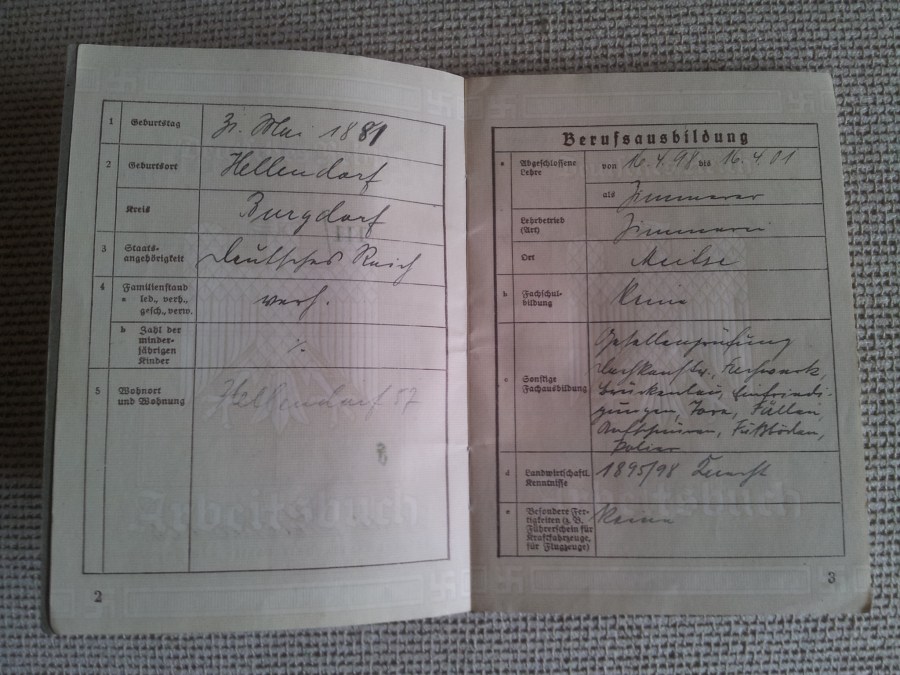 1 Geburtstag 31. Mai 1881
2 Geburtsort Hellendorf
Kreis Burgdorf
3 Staats-
angehörigkeit Deutsches Reich
4 Familienstand
a led., verh., verh.
gesch., verw.
b Zahl der
minder-
jährigen
Kinder ·/.
5 Wohnort
und Wohnung Hellendorf 57
Arbeitsbuch
2
Berufsausbildung
a Abgeschlossene von 16.4.98 bis 16.4.01
Lehre
als Zimmerer
Lehrbetrieb
(Art) Zimmerei
Ort Meitze
b Fachschul-
bildung Keine
Gesellenprüfung
Fachwerk,
c Sonstige Brückenbau, Einfriedi-
Fachausbildung gungen, Tore, Fällen,
Fußböden,
Polier
d Landwirtschaftl. 1895/98 Knecht
Kenntnisse
e Besondere Fer-
tigkeiten (z. B. Keine
Führerschein für
Kraftfahrzeuge,
für Flugzeuge)
Arbeitsbuch
3